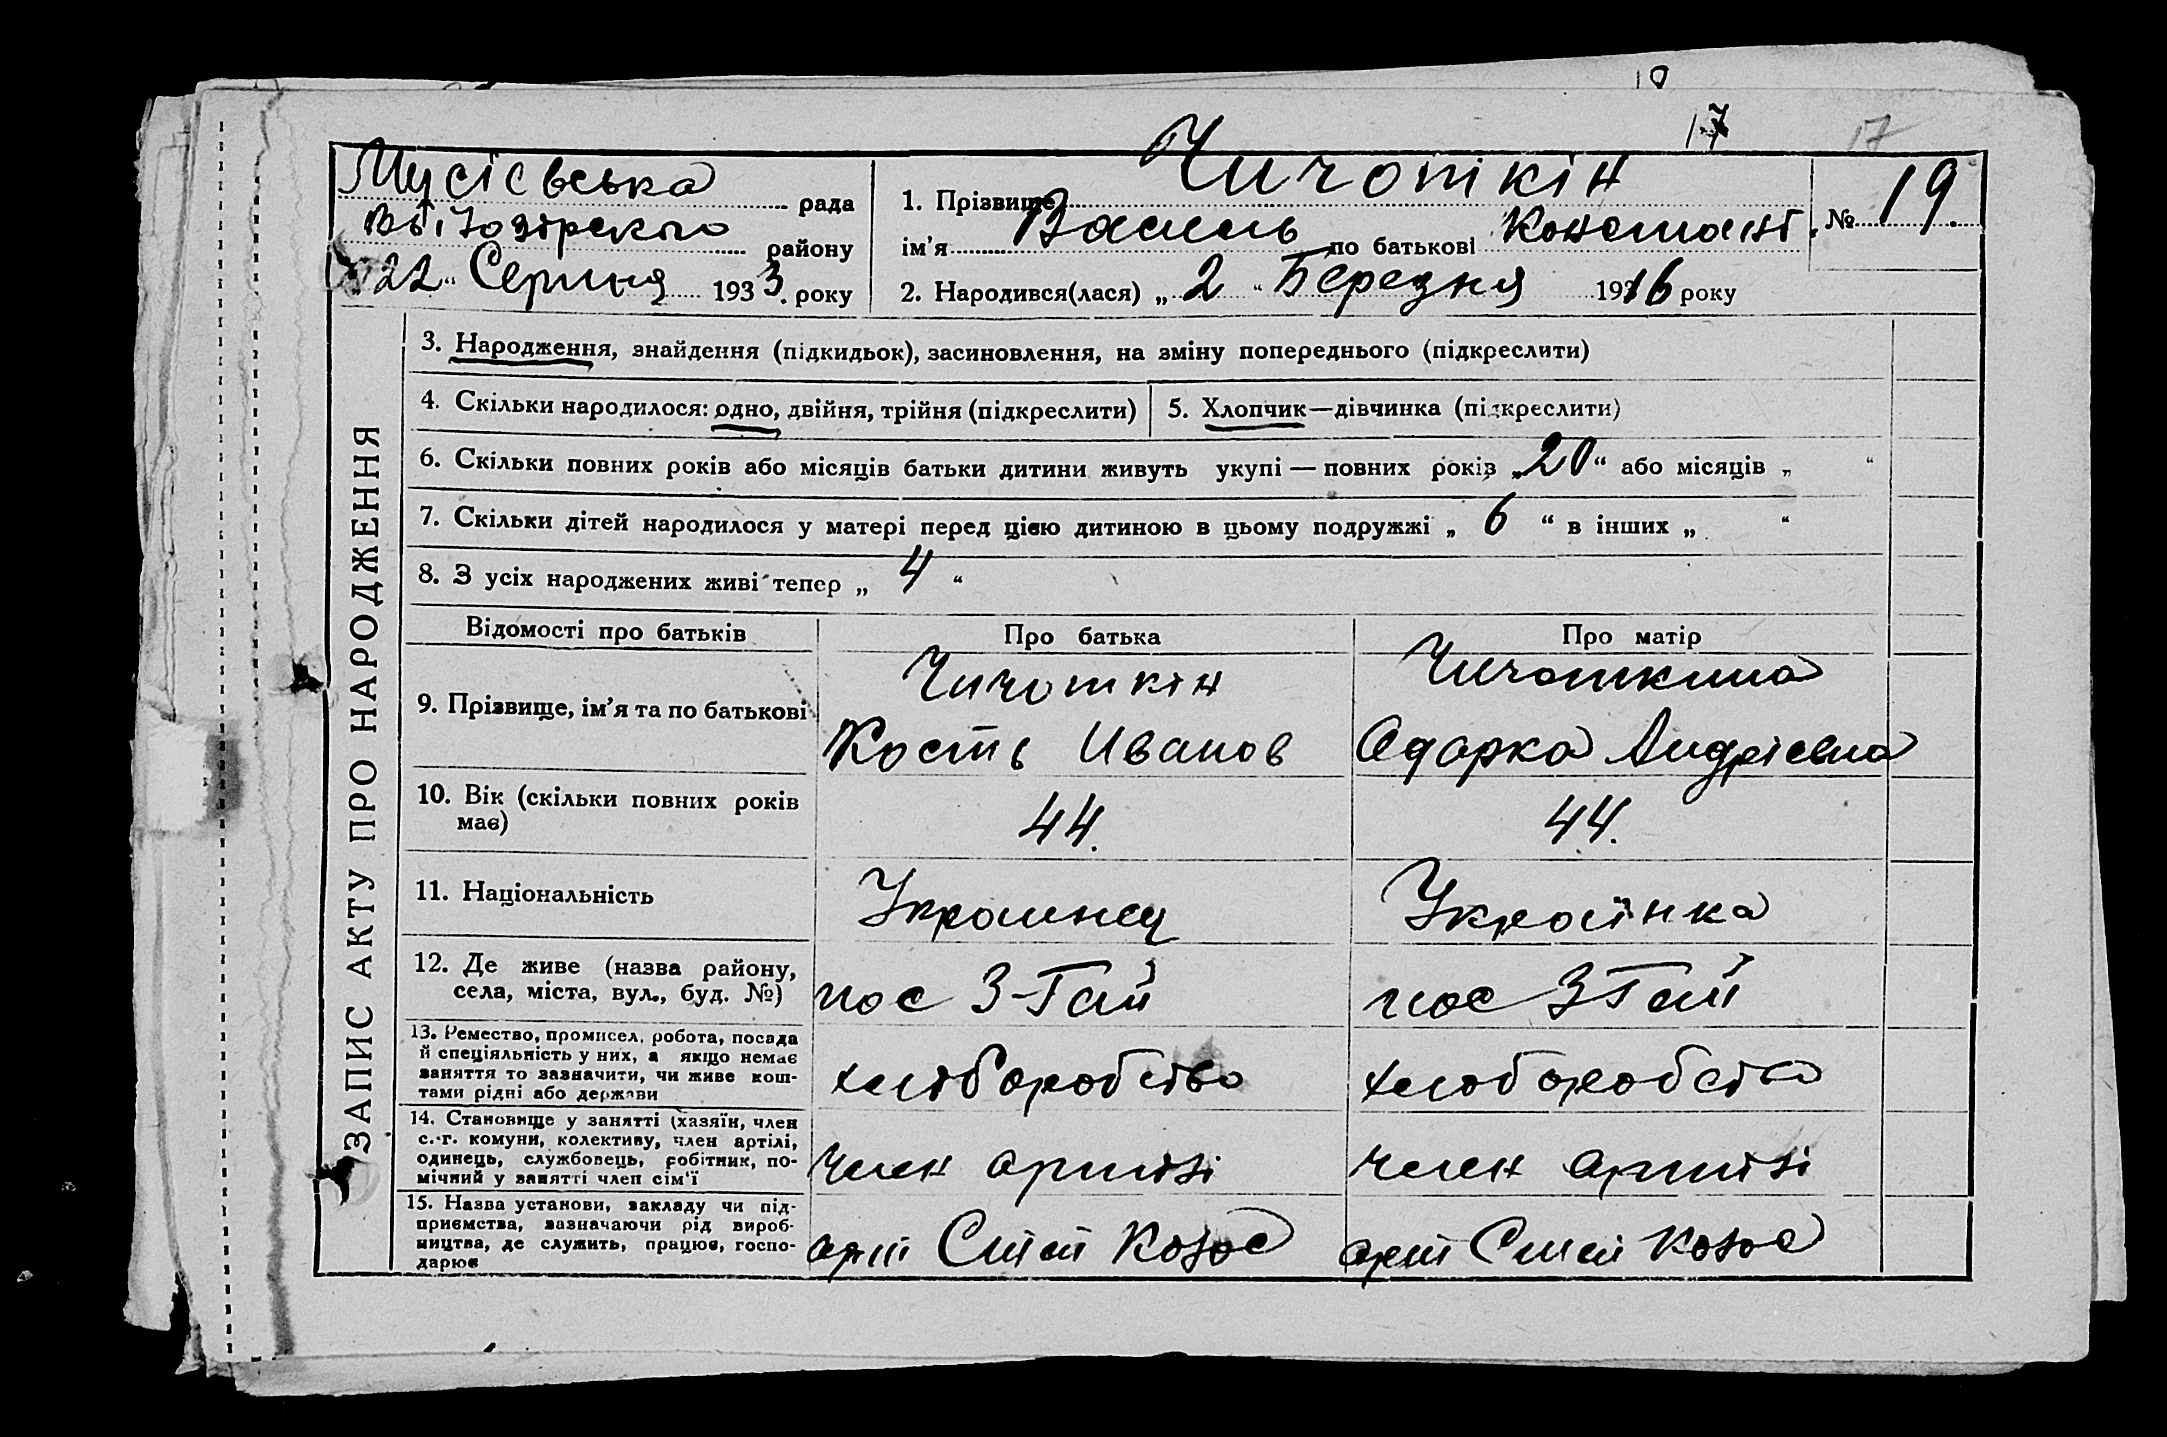 10
17 17
Мусіевська рада
Вбілозірского району
„22“ Серпня 1933. року
1. Прізвище Чичоткін
ім'я Василь по батькові Констант.
№ 19.
2. Народився(лася) „2“ Березня 1916 року
ЗАПИС АКТУ ПРО НАРОДЖЕННЯ
3. Народження, знайдення (підкидьок), засиновлення, на зміну попереднього (підкреслити)
4. Скільки народилося: одно, двійня, трійня (підкреслити)
5. Хлопчик—дівчинка (підкреслити)
6. Скільки повних років або місяців батьки дитини живуть укупі — повних років „20“ або місяців „ “
7. Скільки дітей народилося у матері перед цією дитиною в цьому подружжі „ 6 “ в інших „ “
8. З усіх народжених живі тепер „ 4 “
Відомості про батьків Про батька Про матір
9. Прізвище, ім'я та по батькові
Чичоткін
Кость Иванов
Чичоткина
Одарка Андріевна
10. Вік (скільки повних років
має)
44. 44.
11. Національність
Украинец Українка
12. Де живе (назва району,
села, міста, вул., буд. №)
пос 3-Гай пос 3 Гай
13. Ремество, промисел, робота, посада
й спеціяльність у них, а якщо немає
заняття то зазначити, чи живе кош-
тами рідні або держави
хліборобство хлоборобство
14. Становище у занятті (хазяїн, член
с.-г. комуни, колективу, член артілі,
одинець, службовець, робітник, по-
мічний у занятті член сім'ї
член артілі член артілі
15. Назва установи, закладу чи під-
приємства, зазначаючи рід вироб-
ництва, де служить, працює, госпо-
дарює
арт арт